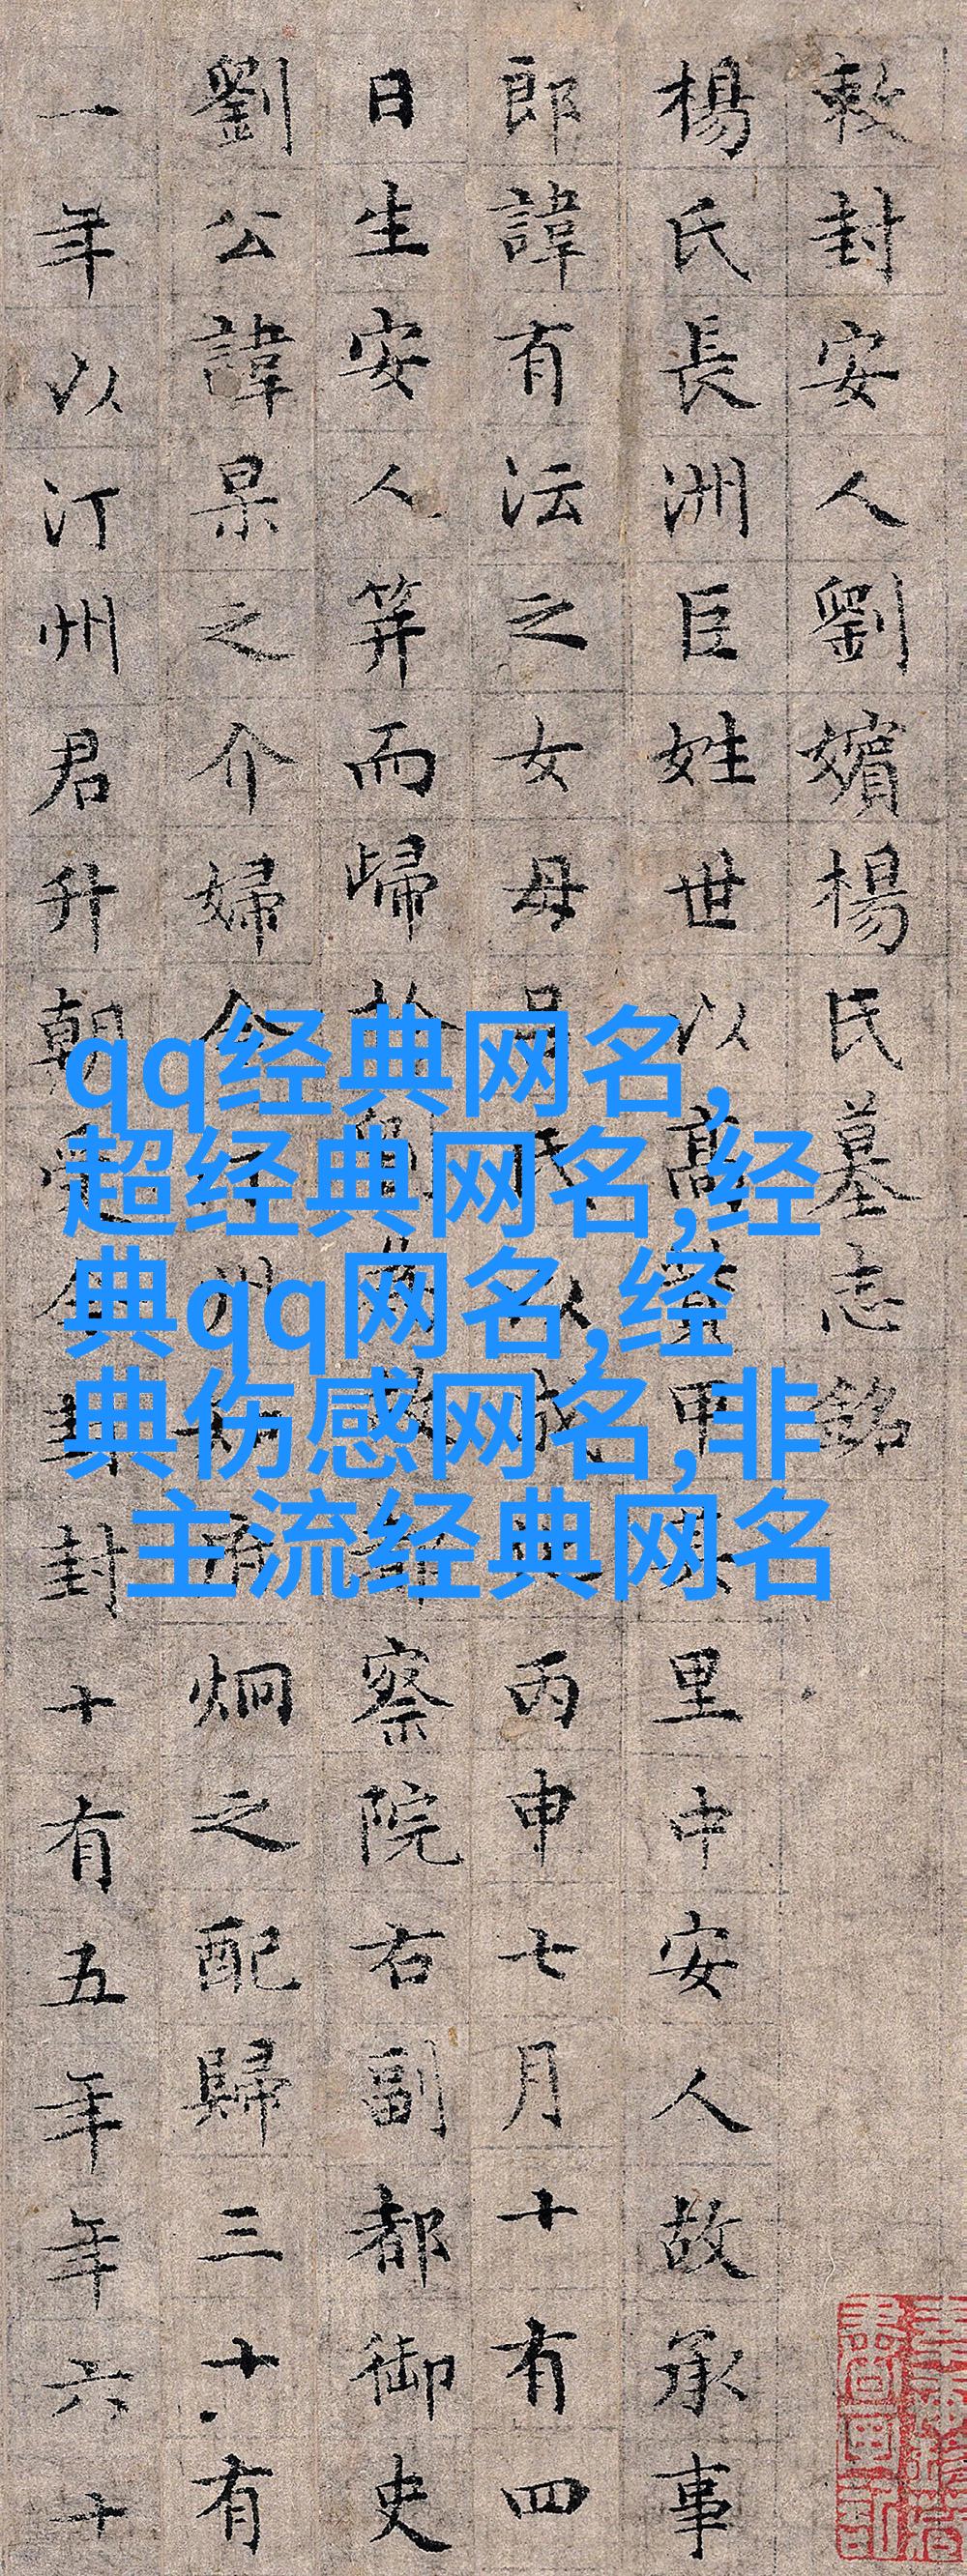 敕封安人劉嬪楊氏墓志銘
楊氏長洲巨姓世以高甲其里中安人故承事
郎諱有沄之女母呂氏以成化丙申七月十有四
日生安人笄而歸於為故都察院右副都御史
劉公諱杲之介婦今汀州炯之配歸三十有
一年以汀州君升朝受今封封十有五年年六十
qq经典网名,
超经典网名,经
典qq网名,经
典伤感网名,非
主流经典网名